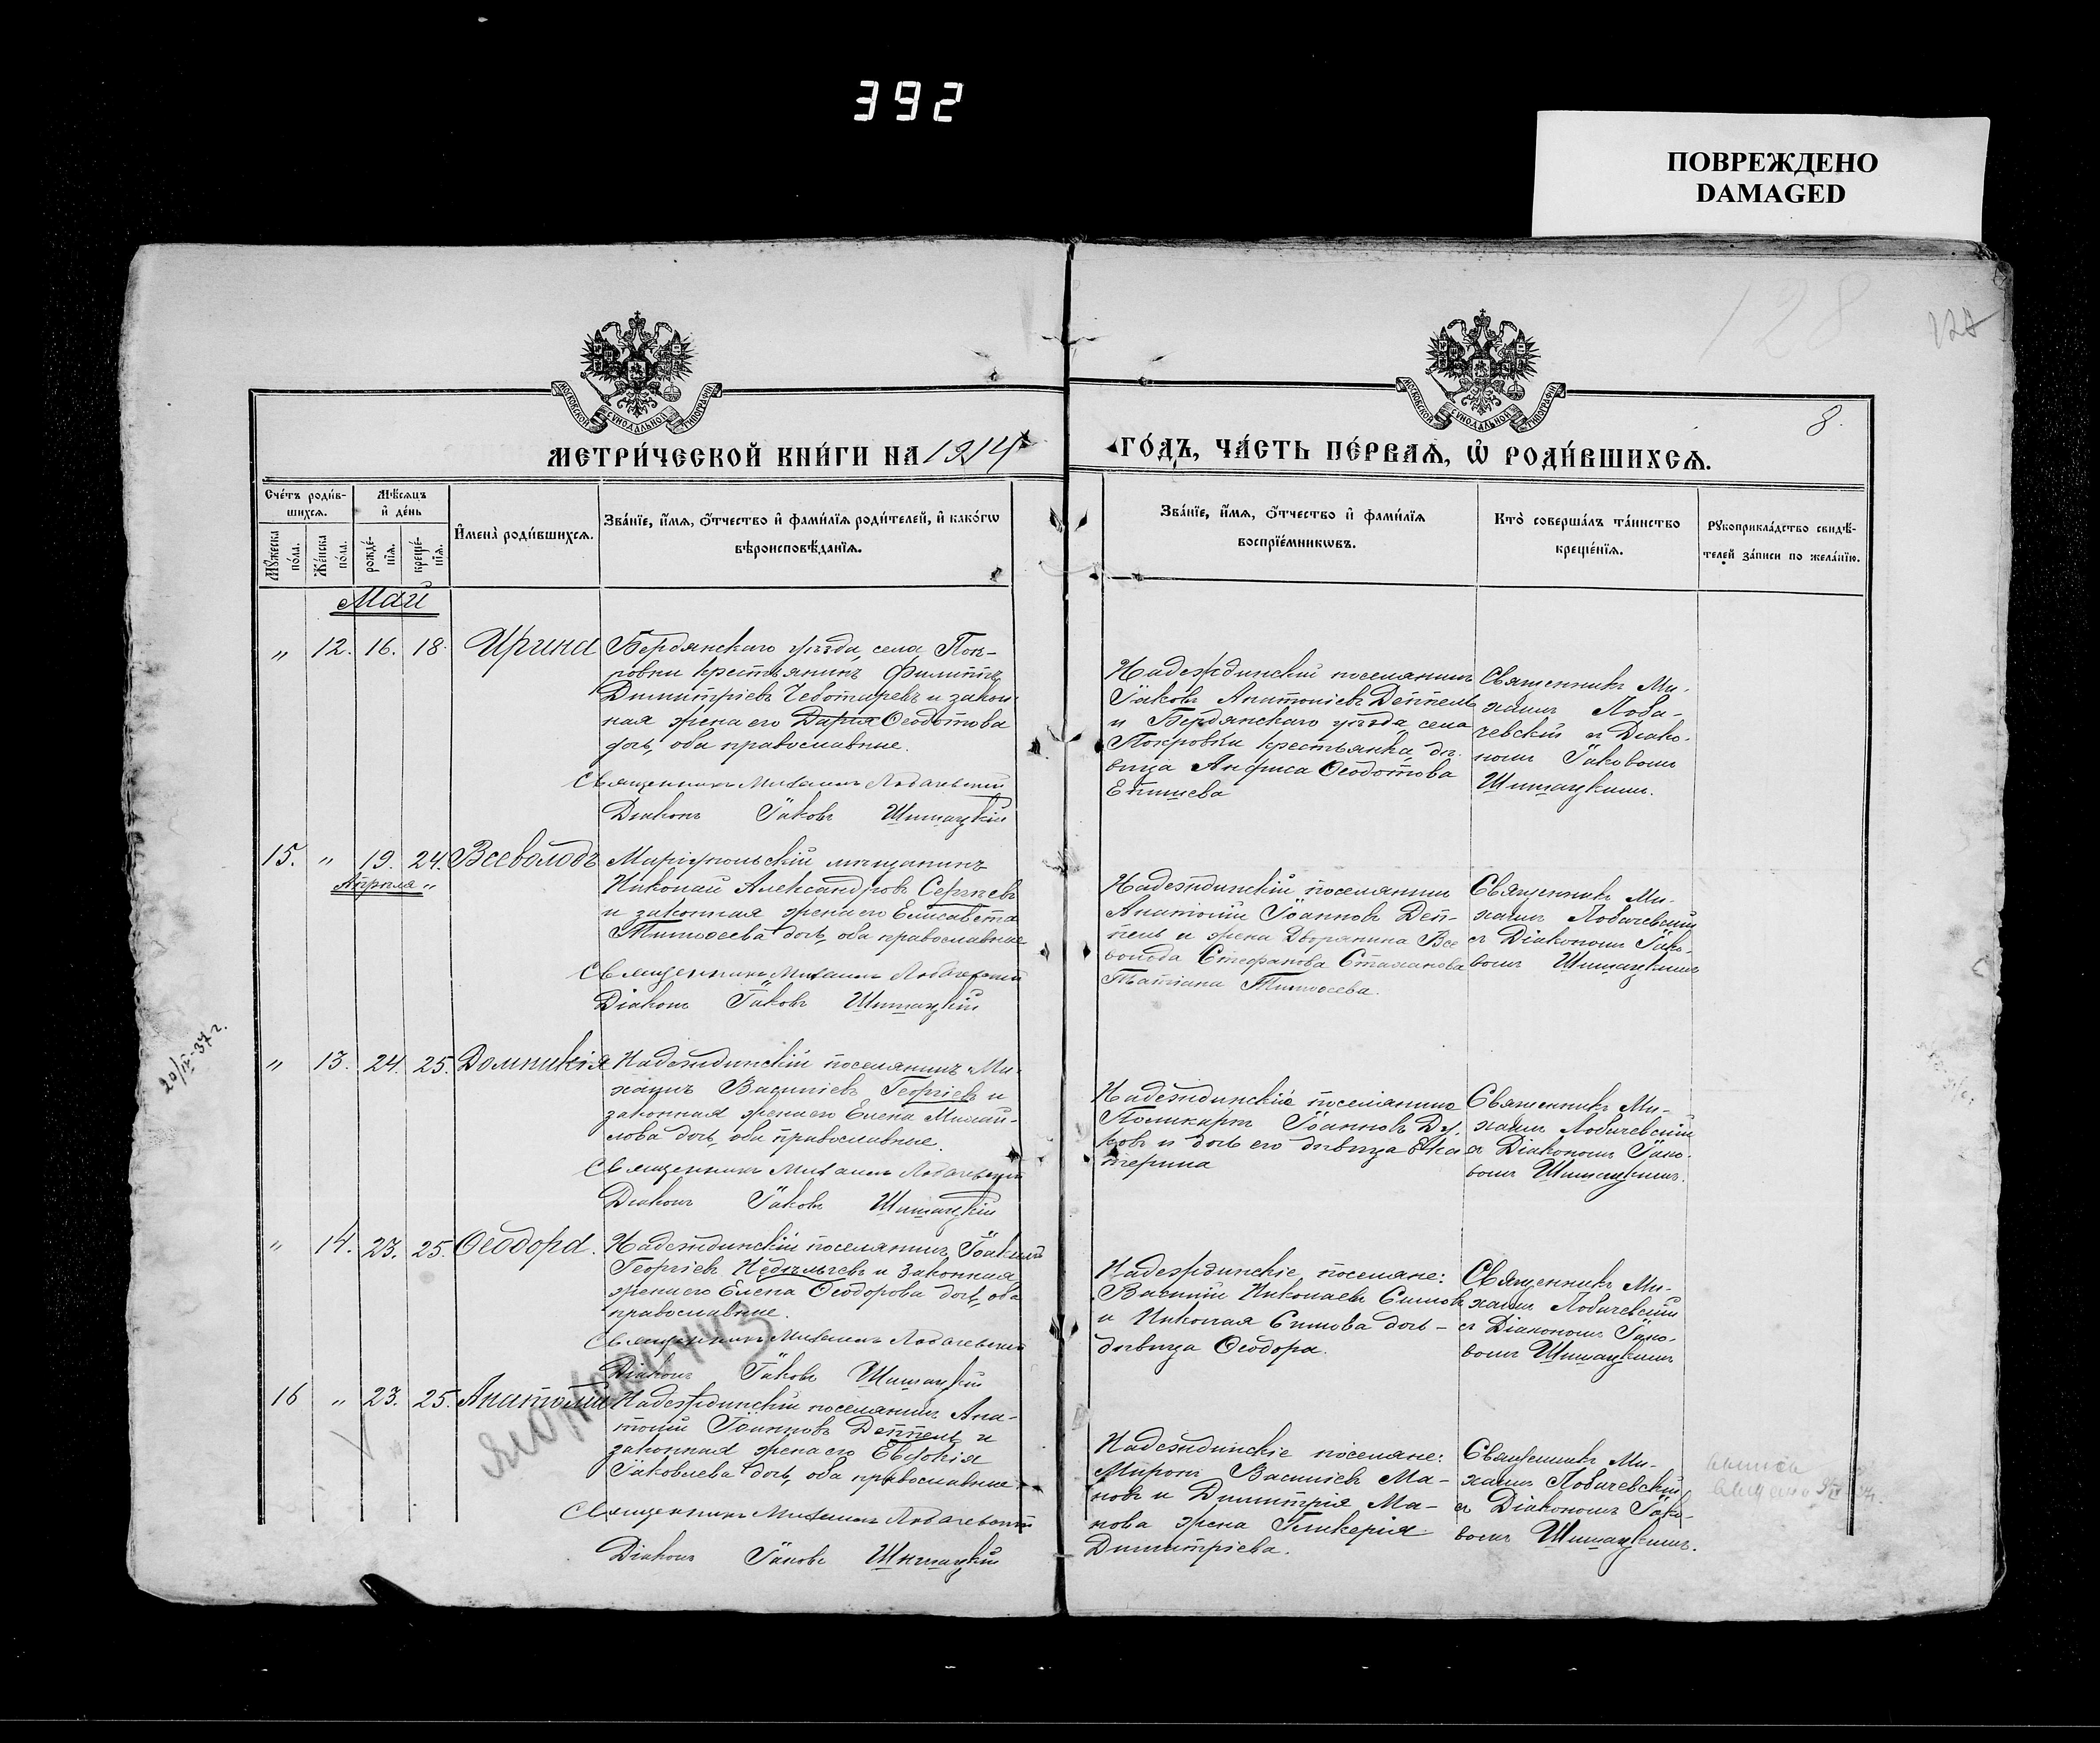 392
ПОВРЕЖДЕНО
DAMAGED
128
8.
МОСКОВСКОЙ СѴНОДАЛЬНОЙ ТИПОГРАФІИ
МОСКОВСКОЙ СѴНОДАЛЬНОЙ ТИПОГРАФІИ
МЕТРИ́ЧЕСКОЙ КНИ́ГИ НА 1914
ГО́ДЪ, ЧА́СТЬ ПЕ́РВАѦ, Ѡ҆ РОДИ́ВШИХСѦ.
Сче́тъ роди́в-
шихсѧ.
Мѣ́сѧцъ
и҆ де́нь
Мꙋ́жеска по́ла.
Же́нска по́ла.
рожде́-
нїѧ.
креще́-
нїѧ.
И҆мена̀ роди́вшихсѧ.
Зва́нїе, и҆́мѧ, ѻ҆́тчество и҆ фами́лїѧ роди́телей, и҆ како́гѡ
вѣроисповѣ́данїѧ.
Зва́нїе, и҆́мѧ, ѻ҆́тчество и҆ фами́лїѧ
воспрїе́мникѡвъ.
Кто̀ соверша́лъ та́инство
креще́нїѧ.
Рꙋкоприкла́дство свидѣ́-
телей за́писи по жела́нїю.
Май
„ 12. 16. 18. Ирина
Бердянскаго уѣзда, села Пок-
ровки крестьянинъ Филиппъ
Димитріевъ Чеботаревъ и закон-
ная жена его Дарія Ѳеодотова
дочь, оба православные.
Священникъ Михаилъ Лобачевскій
Діаконъ Іаковъ Шишацкій
Надеждинскій поселянинъ
Іаковъ Анатоліевъ Деппель
и Бердянскаго уѣзда, села
Покровки крестьянка, дѣ-
вица Анфиса Ѳеодотова
Епишева
Священникъ Ми-
хаилъ Лоба-
чевскій съ Діако-
номъ Іаковомъ
Шишацкимъ.
15. „ 19. 24. Всеволодъ
Апрѣля „
Маріупольскій мѣщанинъ
Николай Александровъ Сергѣевъ
и законная жена его Елисавета
Тимоѳеева дочь, оба православные
Священникъ Михаилъ Лобачевскій
Діаконъ Іаковъ Шишацкій
Надеждинскій поселянинъ
Анатолій Іоанновъ Деп-
пель и жена Дворянина Все
волода Стефанова Стаханова
Татіана Тимоѳеева.
Священникъ Ми-
хаилъ Лобачевскій
съ Діакономъ Іако-
вомъ Шишацкимъ
20/IV-37г.
„ 13. 24. 25. Домникія
Надеждинскій поселянинъ Ми-
хаилъ Васильевъ Георгіевъ и
законная жена его Елена Михай-
лова дочь, оба православные.
Священникъ Михаилъ Лобачевскій
Діаконъ Іаковъ Шишацкій
Надеждинскій поселянинъ
Поликарпъ Іоанновъ
и дочь его дѣвица Ека
терина
Священникъ Ми-
хаилъ Лобачевскій
съ Діакономъ Іако-
вомъ Шишацкимъ.
„ 14. 23. 25. Ѳеодора.
Надеждинскій поселянинъ Іоакимъ
Георгіевъ Недѣльчевъ и законная
жена его Елена Ѳеодорова дочь, оба
православные.
Священникъ Михаилъ Лобачевскій
Діаконъ Іаковъ Шишацкій
Надеждинскіе поселяне:
Василій Николаевъ Симовъ
и Николая Симова дочь –
дѣвица Ѳеодора.
Священникъ Ми-
хаилъ Лобачевскій
съ Діакономъ Іако-
вомъ Шишацкимъ
16 „ 23. 25. Анатолій
Надеждинскій поселянинъ Ана-
толій Іоанновъ Деппель и
законная жена его Евдокія
Іаковлева дочь, оба православные.
Священникъ Михаилъ Лобачевскій
Діаконъ Іаковъ Шишацкій
Надеждинскіе поселяне:
Миронъ Васильевъ Ма-
новъ и Димитрія Ма-
нова жена Гликерія
Димитріева.
Священникъ Ми-
хаилъ Лобачевскій
съ Діакономъ Іако-
вомъ Шишацкимъ.